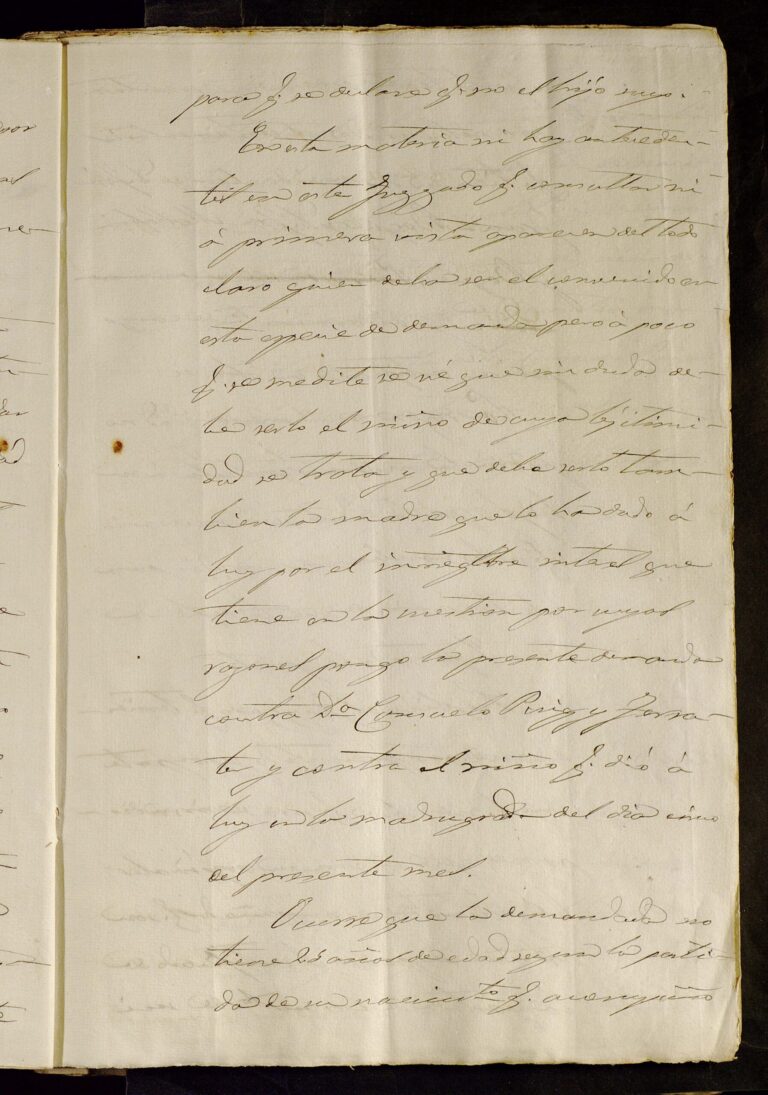 para q. se declare q. no es hijo suyo.
En esta materia ni hay anteceden-
tes en este Juzgado q. consultar ni
á primera vista aparece en del todo
claro quien deba ser el convenido en
esta especie de demanda pero á poco
q. se medite se vé que sin duda de-
be serlo el niño de cuya lejitimi-
dad se trata y que debe serlo tam-
bien la madre que lo ha dado á
luz por el interes que
tiene en la cuestion por cuyas
razones pongo la presente demanda
contra Da. Consuelo Puig y Ferra-
te y contra el niño q. dió á
luz en la madrugada del dia cinco
del presente mes.
Ocurre que la demandada no
tiene 25 años de edad segun la parti-
da de su nacimto. q. acompaño